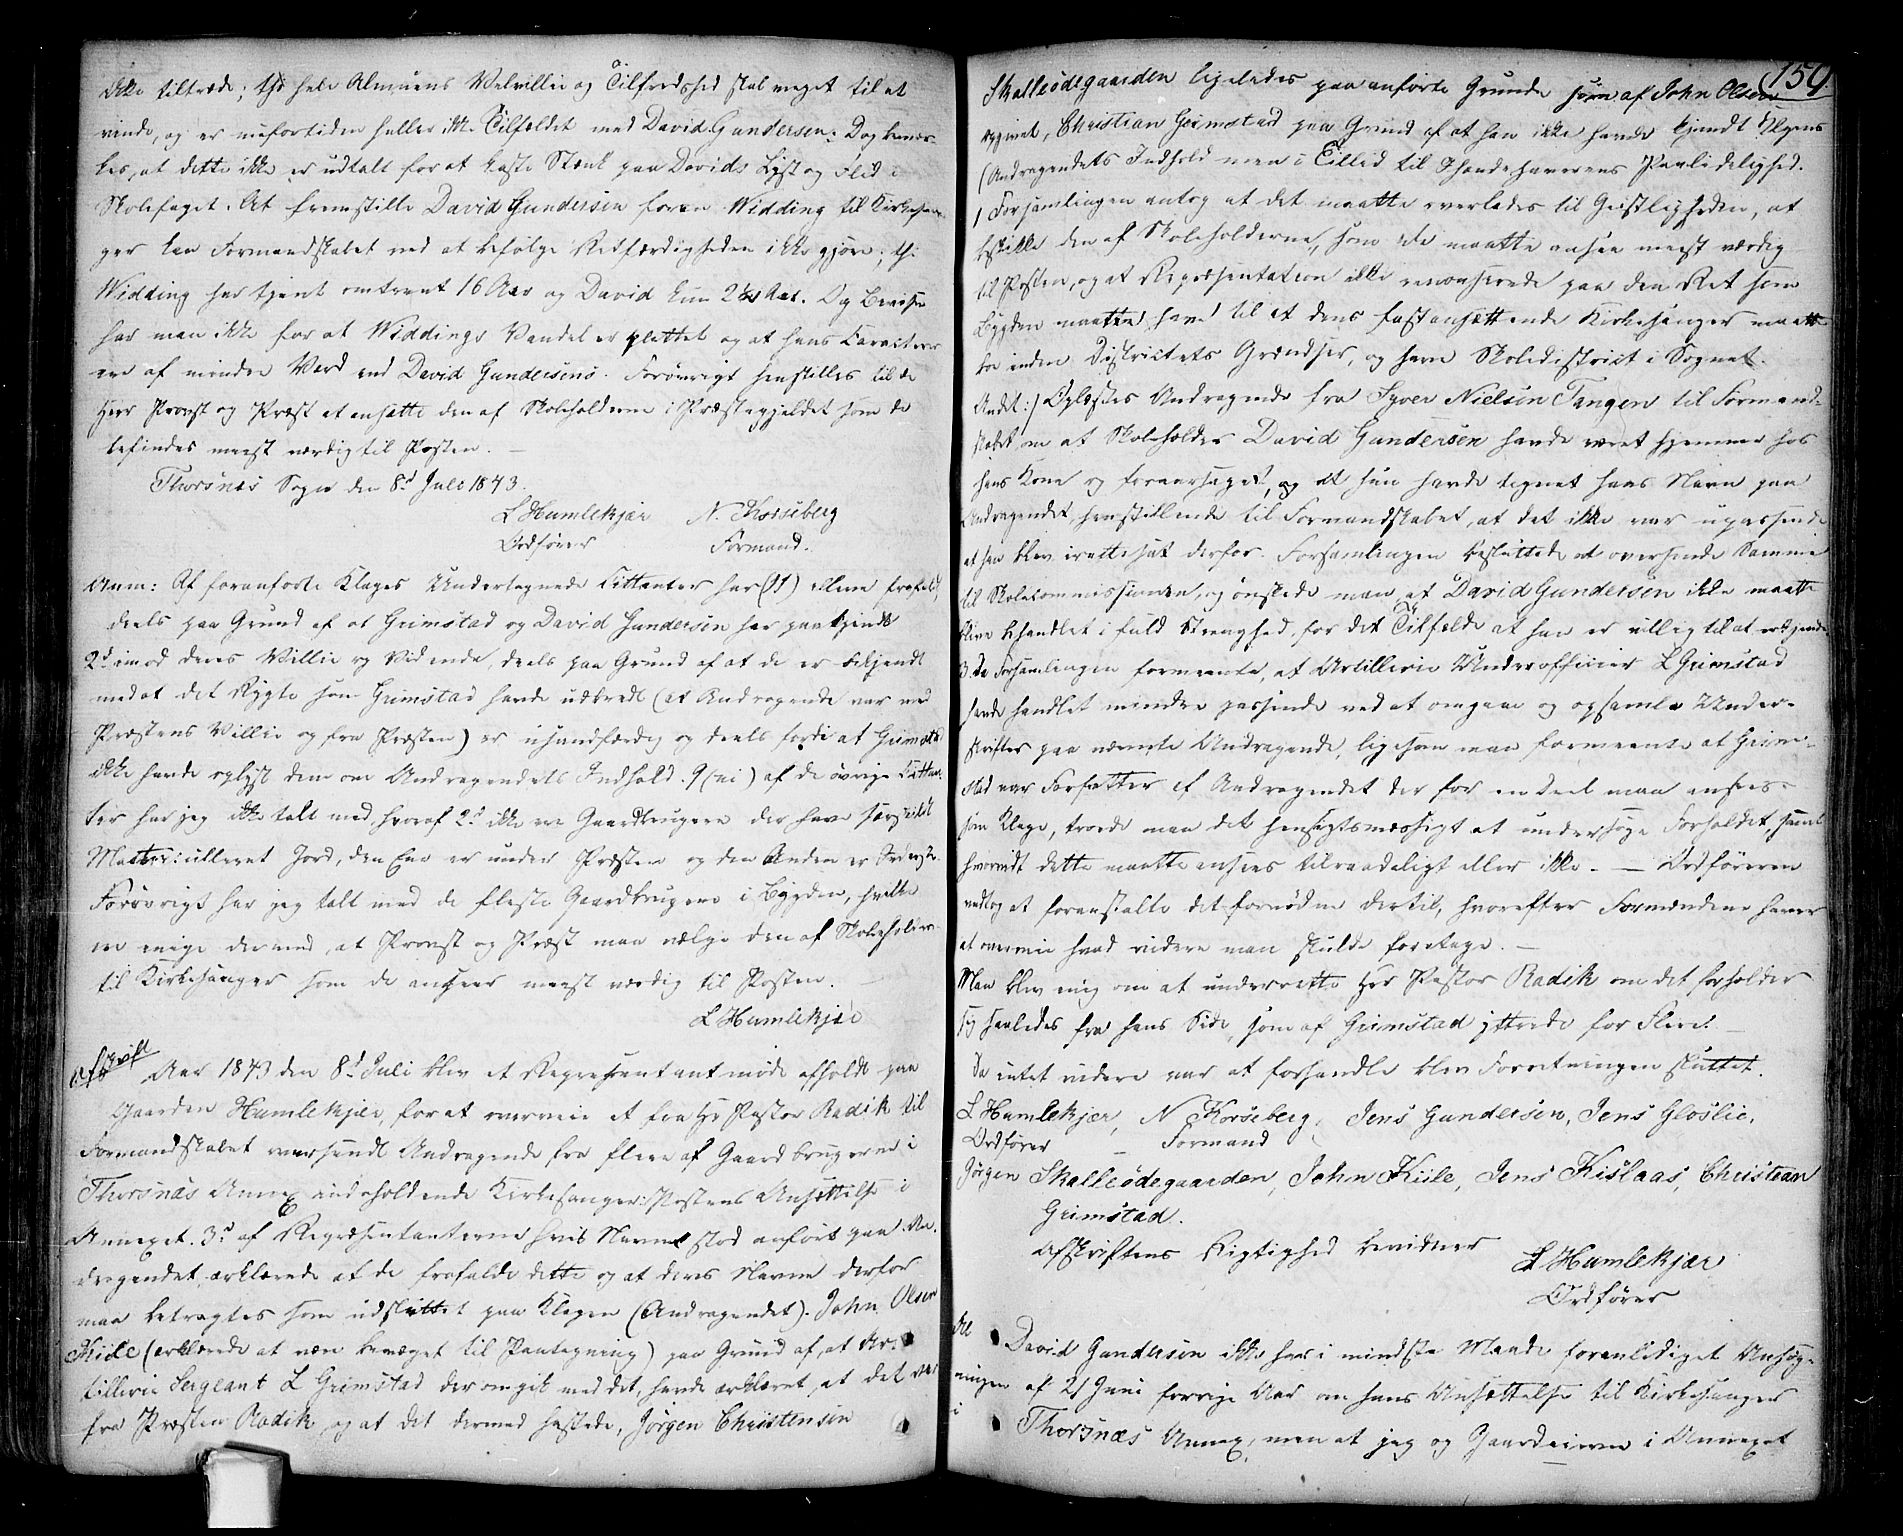 ikke tiltræde; thi hele Almuens Velvillie og Tilfredshed skal meget til at
vinde, og er mefortiden heller ikke Tilfældet med David Gundersen. Dog bemær-
kes, at dette ikke er udtalt for at kaste Stænk paa Davids Lyst og Flid i
Skolefaget. At fremstille David Gundersen foran Widding til Kirkesan-
ger kan Formandskabet ved at befølge Retfærdigheden ikke gjøre; thi
Widding har tjent omtrent 16 Aar og David kun 2½ Aar. Og Beviser
har man ikke for at Widdings Vandel er plettet og at hans Caracterer
ere af mindre Værd end David Gundersens. Forøvrigt henstilles til de
Herr Provst og Præst at ansætte den af Skoleholderne i Præstegjeldet som de
befindes meest værdig til Posten.
Thorsnæs Sogn den 8d Juli 1843.
L Humlekjær N. Korseberg
Ordfører Formand.
Anm: Af foranførte Klages Undertegnede Littanter har (11) elleve frafaldt,
deels paa Grund af at Grimstad og David Gundersen har paategndt
2d imod deres Villie og Vidende, deels paa Grund af at de er bekjendt
med at det Rygte som Grimstad havde udbredt (at Andragende var med
Præstens Villie og fra Præsten) er usandfærdig og deels fordi at Grimstad
ikke havde oplyst dem om Andragendets Indhold. 9 (ni) af de øvrige Littan-
ter har jeg ikke talt med, hvoraf 2d ikke ere Gaardbrugere der have særskildt
Matriculleret Jord, den Ene er under Præsten og den Anden er
Forøvrigt har jeg talt med de fleste Gaardbrugere i Bygden, hvilke
ere enige derved, at Provst og Præst maa vælge den af Skoleholderne
til Kirkesanger som de ansees meest værdig til Posten.
L Humlekjær
Afskrift
Aar 1843 den 8d Juli blev et Repræsentantmøde afholdt paa
Gaarden Humlekjær, for at overveie et fra Hr Pastor Radik til
Formandskabet oversendt Andragende fra flere af Gaardbrugerne i
Thorsnæs Annex indeholdende Kirkesanger-Postens Ansættelse i
Annexet. 3d af Repræsentanterne hvis Navne stod anført paa An-
dragendet erklærede at de frafaldt dette og at deres Navne derfor
maa betragtes som udslettet paa Klagen (Andragendet). John Olsen
Kiile (erklærede at være bevæget til Paategning) paa Grund af, at Ar-
tillerie Sergeant L Grimstad der omgik med det, havde erklæret, at det var
fra Præsten Radik, og at det dermed hastede, Jørgen Christensen
159.
Skalleødegaarden ligeledes paa anførte Grunde som af John Olsen
opgivet, Christian Grimstad paa Grund af at han ikke havde kjendt
Andragendets Indhold men i Tillid til Ihændehaverens Paalidelighed.
Forsamlingen antog at det maatte overlades til Geistligheden, at
beskikke den af Skoleholderne, som de maatte ansee meest værdig
til Posten, og at Repræsentation ikke renonserede paa den Ret som
Bygden maatte have til at dens fastansættende Kirkesanger maatte
boe inden Districtets Grændser, og have Skoledistrict i Sognet.
Andet: Oplæstes Andragende fra Syver Nielsen Tangen til Formand-
skabet om at Skoleholder David Gundersen havde været hjemme hos
hans Kone og foraarsaget, og at hun havde tegnet hans Navn paa
Andragendet, henstillende til Formandskabet, at det ikke var upassende
at han blev irettesat derfor. Forsamlingen besluttede at oversende Samme
til Skolecommissionen, og ønskede man, at David Gundersen ikke maatte
blive behandlet i fuld Strenghed for det Tilfælde at han er villig til at erkjende
3die Forsamlingen formeente, at Artillerie Underofficier L Grimstad
havde handlet mindre passende ved at omgaae og opsamle Under-
skrifter paa nævnte Andragende, ligesom man formeente at Grim-
stad var Forfatter af Andragendet der for en Deel maa ansees
som Klage, troede man det hensigtsmæssigt at undersøge Forholdet, samt
hvorvidt dette maatte ansees tilraadeligt eller ikke. — Ordføreren
vedtog at foranstalte det fornødne dertil, hvorefter Formændene haver
at overveie hvad videre man skulde foretage. —
Man blev enig om at underrette Her Pastor Radik om det forholder
sig saaledes fra hans Side, som af Grimstad yttrede for Flere. —
Da intet videre var at forhandle blev Forretningen sluttet.
L Humlekjær, N Korseberg, Jens Gundersen, Jens Gloslie,
Ordfører Formand
Jørgen Skalleødegaarden, John Kiile, Jens Kislaas, Christian
Grimstad.
Afskriftens Rigtighed bevidner
L Humlekjær
Ordfører
David Gundersen ikke har i mindste Maade foranlediget Ansøg-
ningen af 21 Juni forrige Aar om hans Ansættelse til Kirkesanger
i Thorsnæs Annex, men at jeg og Gaardeierne i Annexet